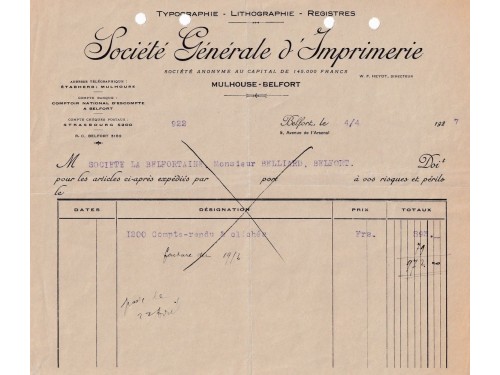 TYPOGRAPHIE - LITHOGRAPHIE - REGISTRES
Société Générale d'Imprimerie
SOCIÉTÉ ANONYME AU CAPITAL DE 140.000 FRANCS
MULHOUSE-BELFORT
ADRESSE TÉLÉGRAPHIQUE :
COMPTE BANQUE :
COMPTOIR NATIONAL D'ESCOMPTE
A BELFORT
COMPTE CHÈQUES POSTAUX :
STRASBOURG
R. C. BELFORT
DIRECTEUR
922
Belfort, le 4/4 193 7
Avenue de l'Arsenal
M SOCIETE LA BELFORTAINE, Monsieur BELLIARD, BELFORT. Doit
pour les articles ci-après expédiés par port à vos risques et périls
le
DATES DÉSIGNATION PRIX TOTAUX
1200 Compte-rendu & clichés Frs.
facture du